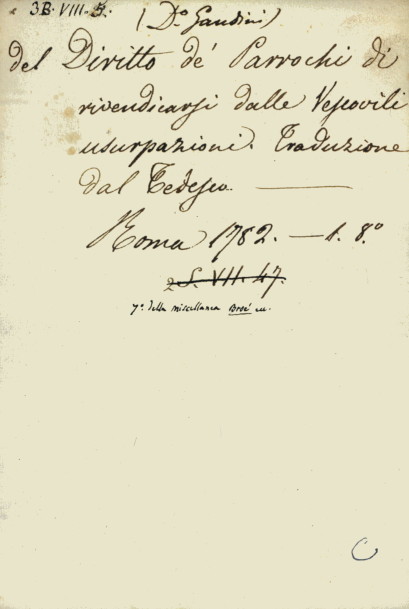 3B. VIII. 5.
(D.º Gaudini)
del Diritto de' Parrochi di
rivendicarsi dalle Vescovili
usurpazioni. Traduzione
dal Tedesco.
Roma 1782. — 1. 8.º
2 S. VII. 47.
7.º della miscellanea
C